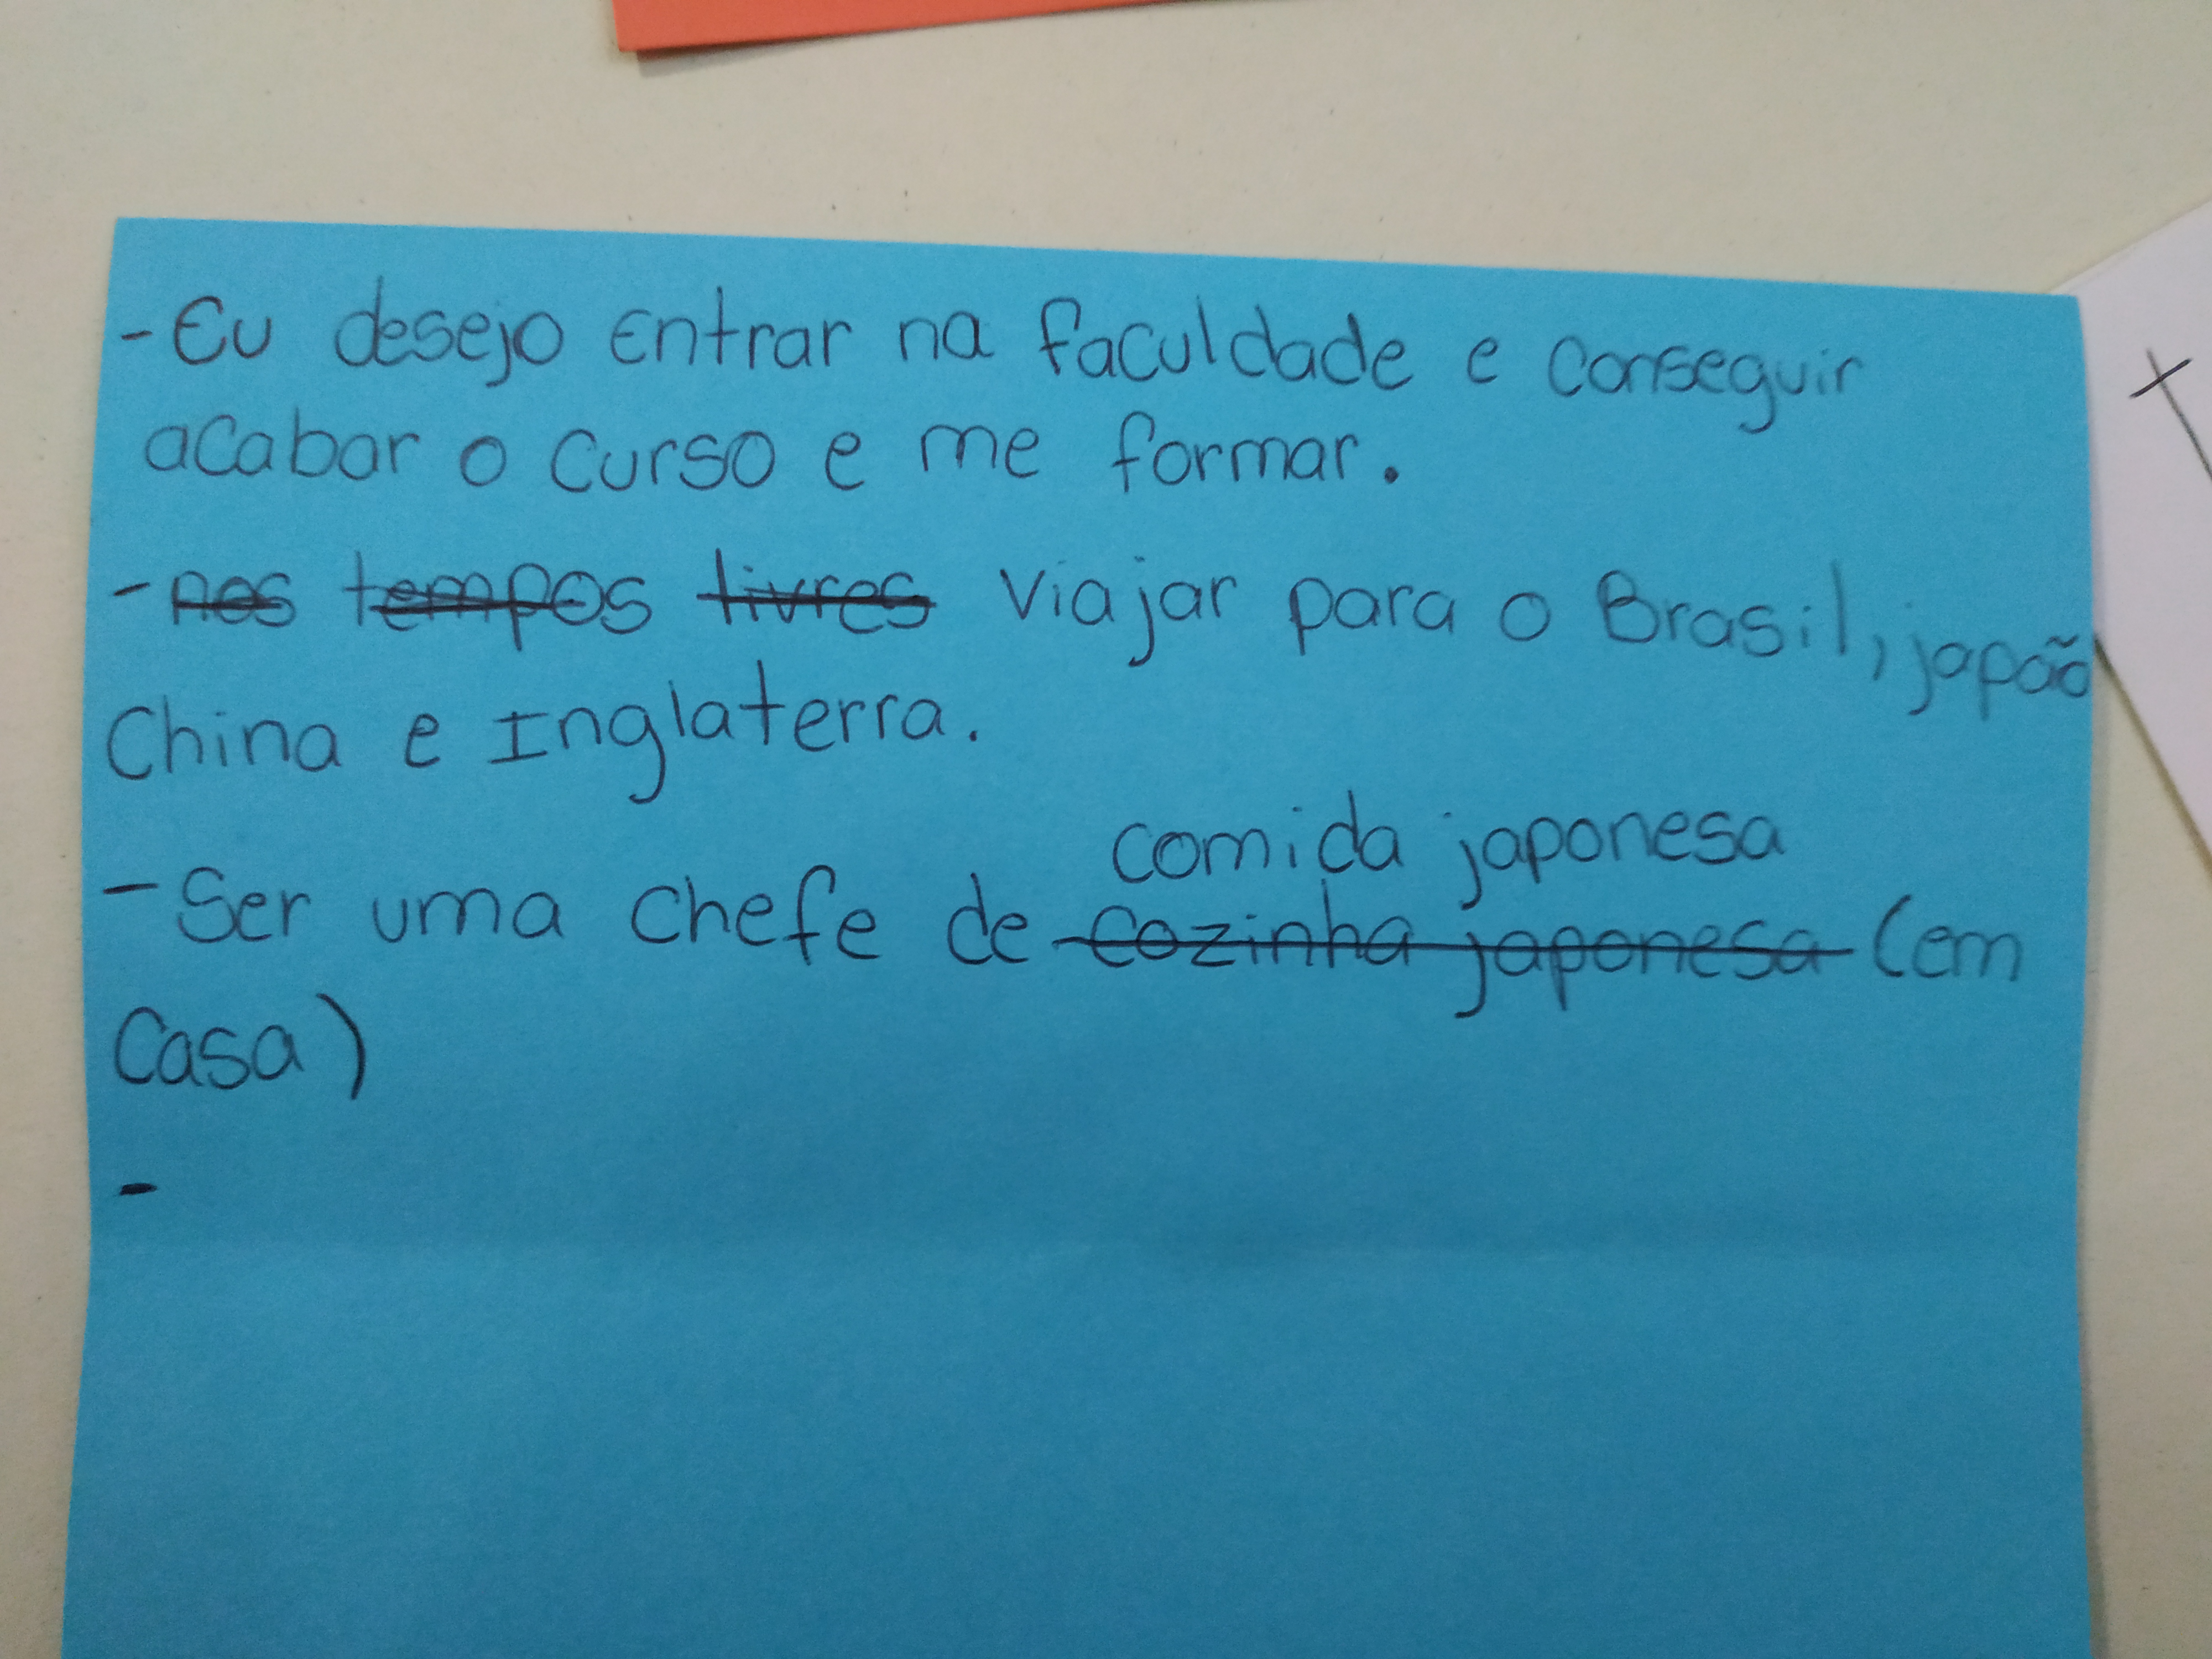 -Eu desejo entrar na faculdade e conseguir
acabar o curso e me formar.
- nos tempos livres viajar para o Brasil, japão
China e Inglaterra.
comida japonesa
- Ser uma chefe de cozinha japonesa (em
Casa)
-